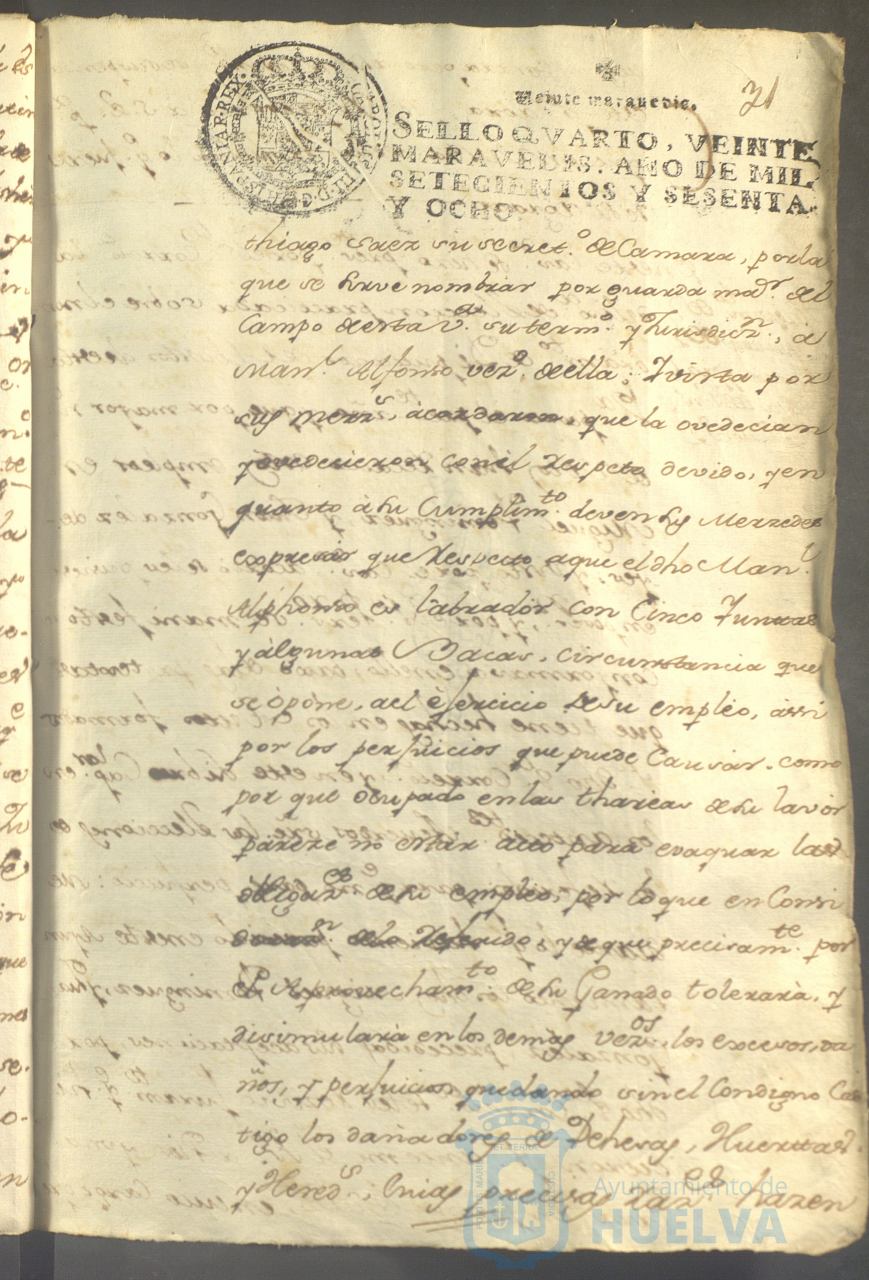 21
Veinte maravedis.
SELLO QVARTO, VEINTE
MARAVEDIS, AÑO DE MIL
SETECIENTOS Y SESENTA
Y OCHO.
CAROLUS III D. G. HISPANIAR. REX.
thiago Saez su secret.o de Camara, por la
que se sirve nombrar por guarda ma.r del
Campo de esta v.a su term.o y Jurisdiz.n, á
Man.l Alfonso vez.o de ella; Y vista por
sus merz.s, acordaron, que la ovedecian
y ovedecieron con el Respeto devido, y en
quanto á su Cumplim.to deven sus Merzedes
expresar que Respecto a que el dho Man.l
Alphonso es labrador con Cinco Yuntas
y algunas Bacas, circunstancia que
se opóne, a el éjercicio de su empléo, assi
por los perjuicios que puede Causar, como
por que Ocupado en las thareas de su lavór
pareze no estar apto para evaquar las
obligaz.es de su empléo, por lo que en Consi
de lo Referido, y de que precisam.te por
el Aprovecham.to de su Ganado tolerará, y
disimulará en los demás vez.os los excesos, da
ños, y perjuicios quedando sin el Condigno Cas
tigo los dañadores de Dehesas, Huertas
y Hered.s; Cuias precisas raz.es hazen
Ayuntamiento de
HUELVA